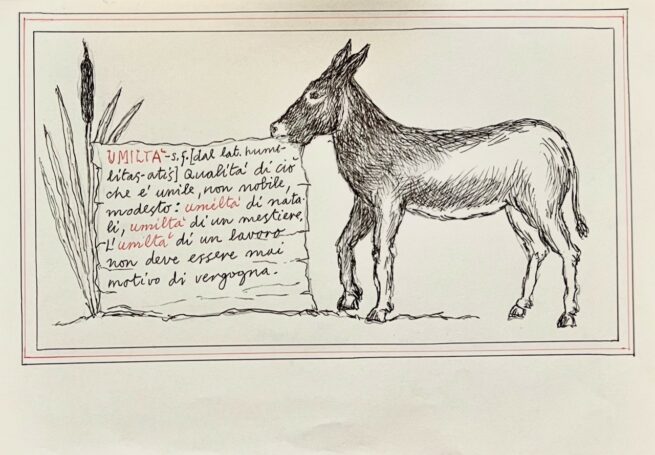 UMILTÀ-s.f.[dal lat. humi-
litas-atis] Qualità di ciò
che e' umile, non nobile,
modesto: umiltà di nata-
li, umiltà di un mestiere.
L'umiltà di un lavoro
non deve essere mai
motivo di vergogna.